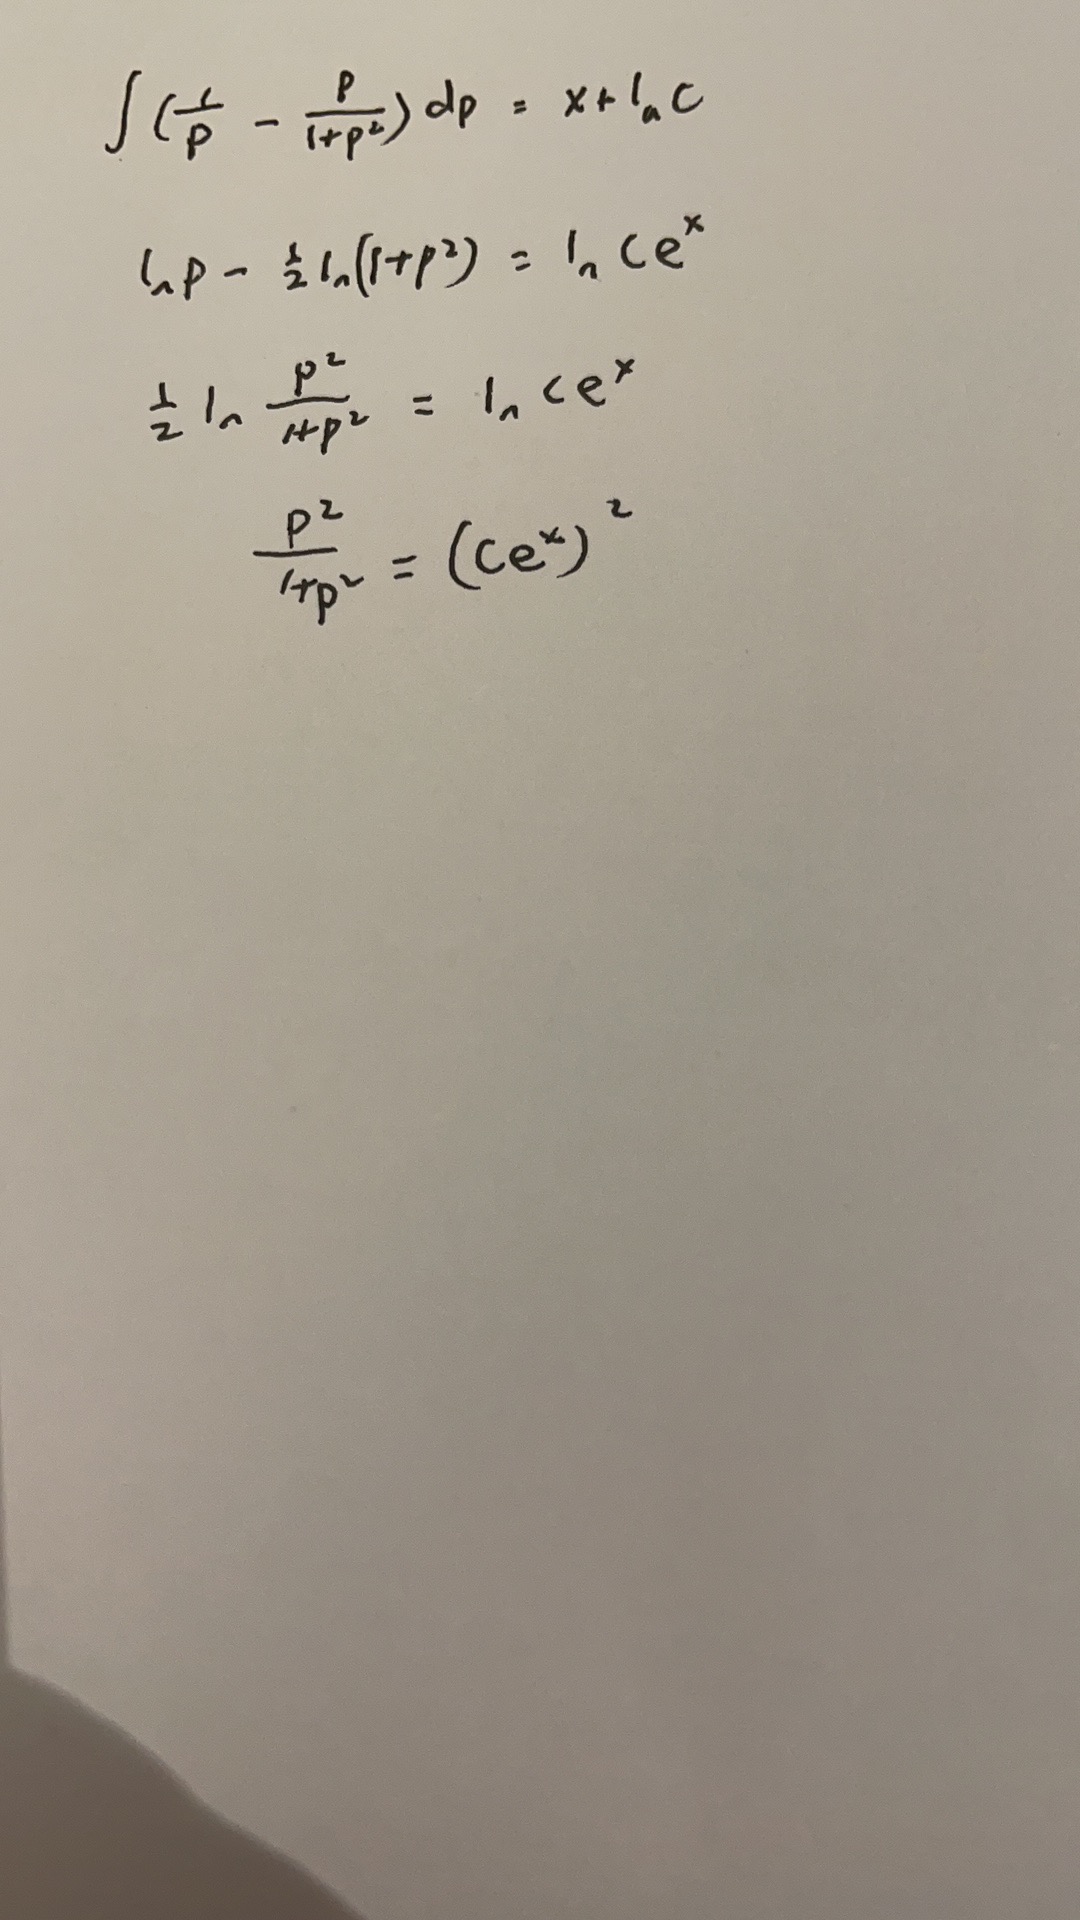 ∫(1/p - p/(1+p²))dp = x+ln C
ln p - ½ ln(1+p²) = ln Ceˣ
½ ln p²/(1+p²) = ln Ceˣ
p²/(1+p²) = (Ceˣ)²